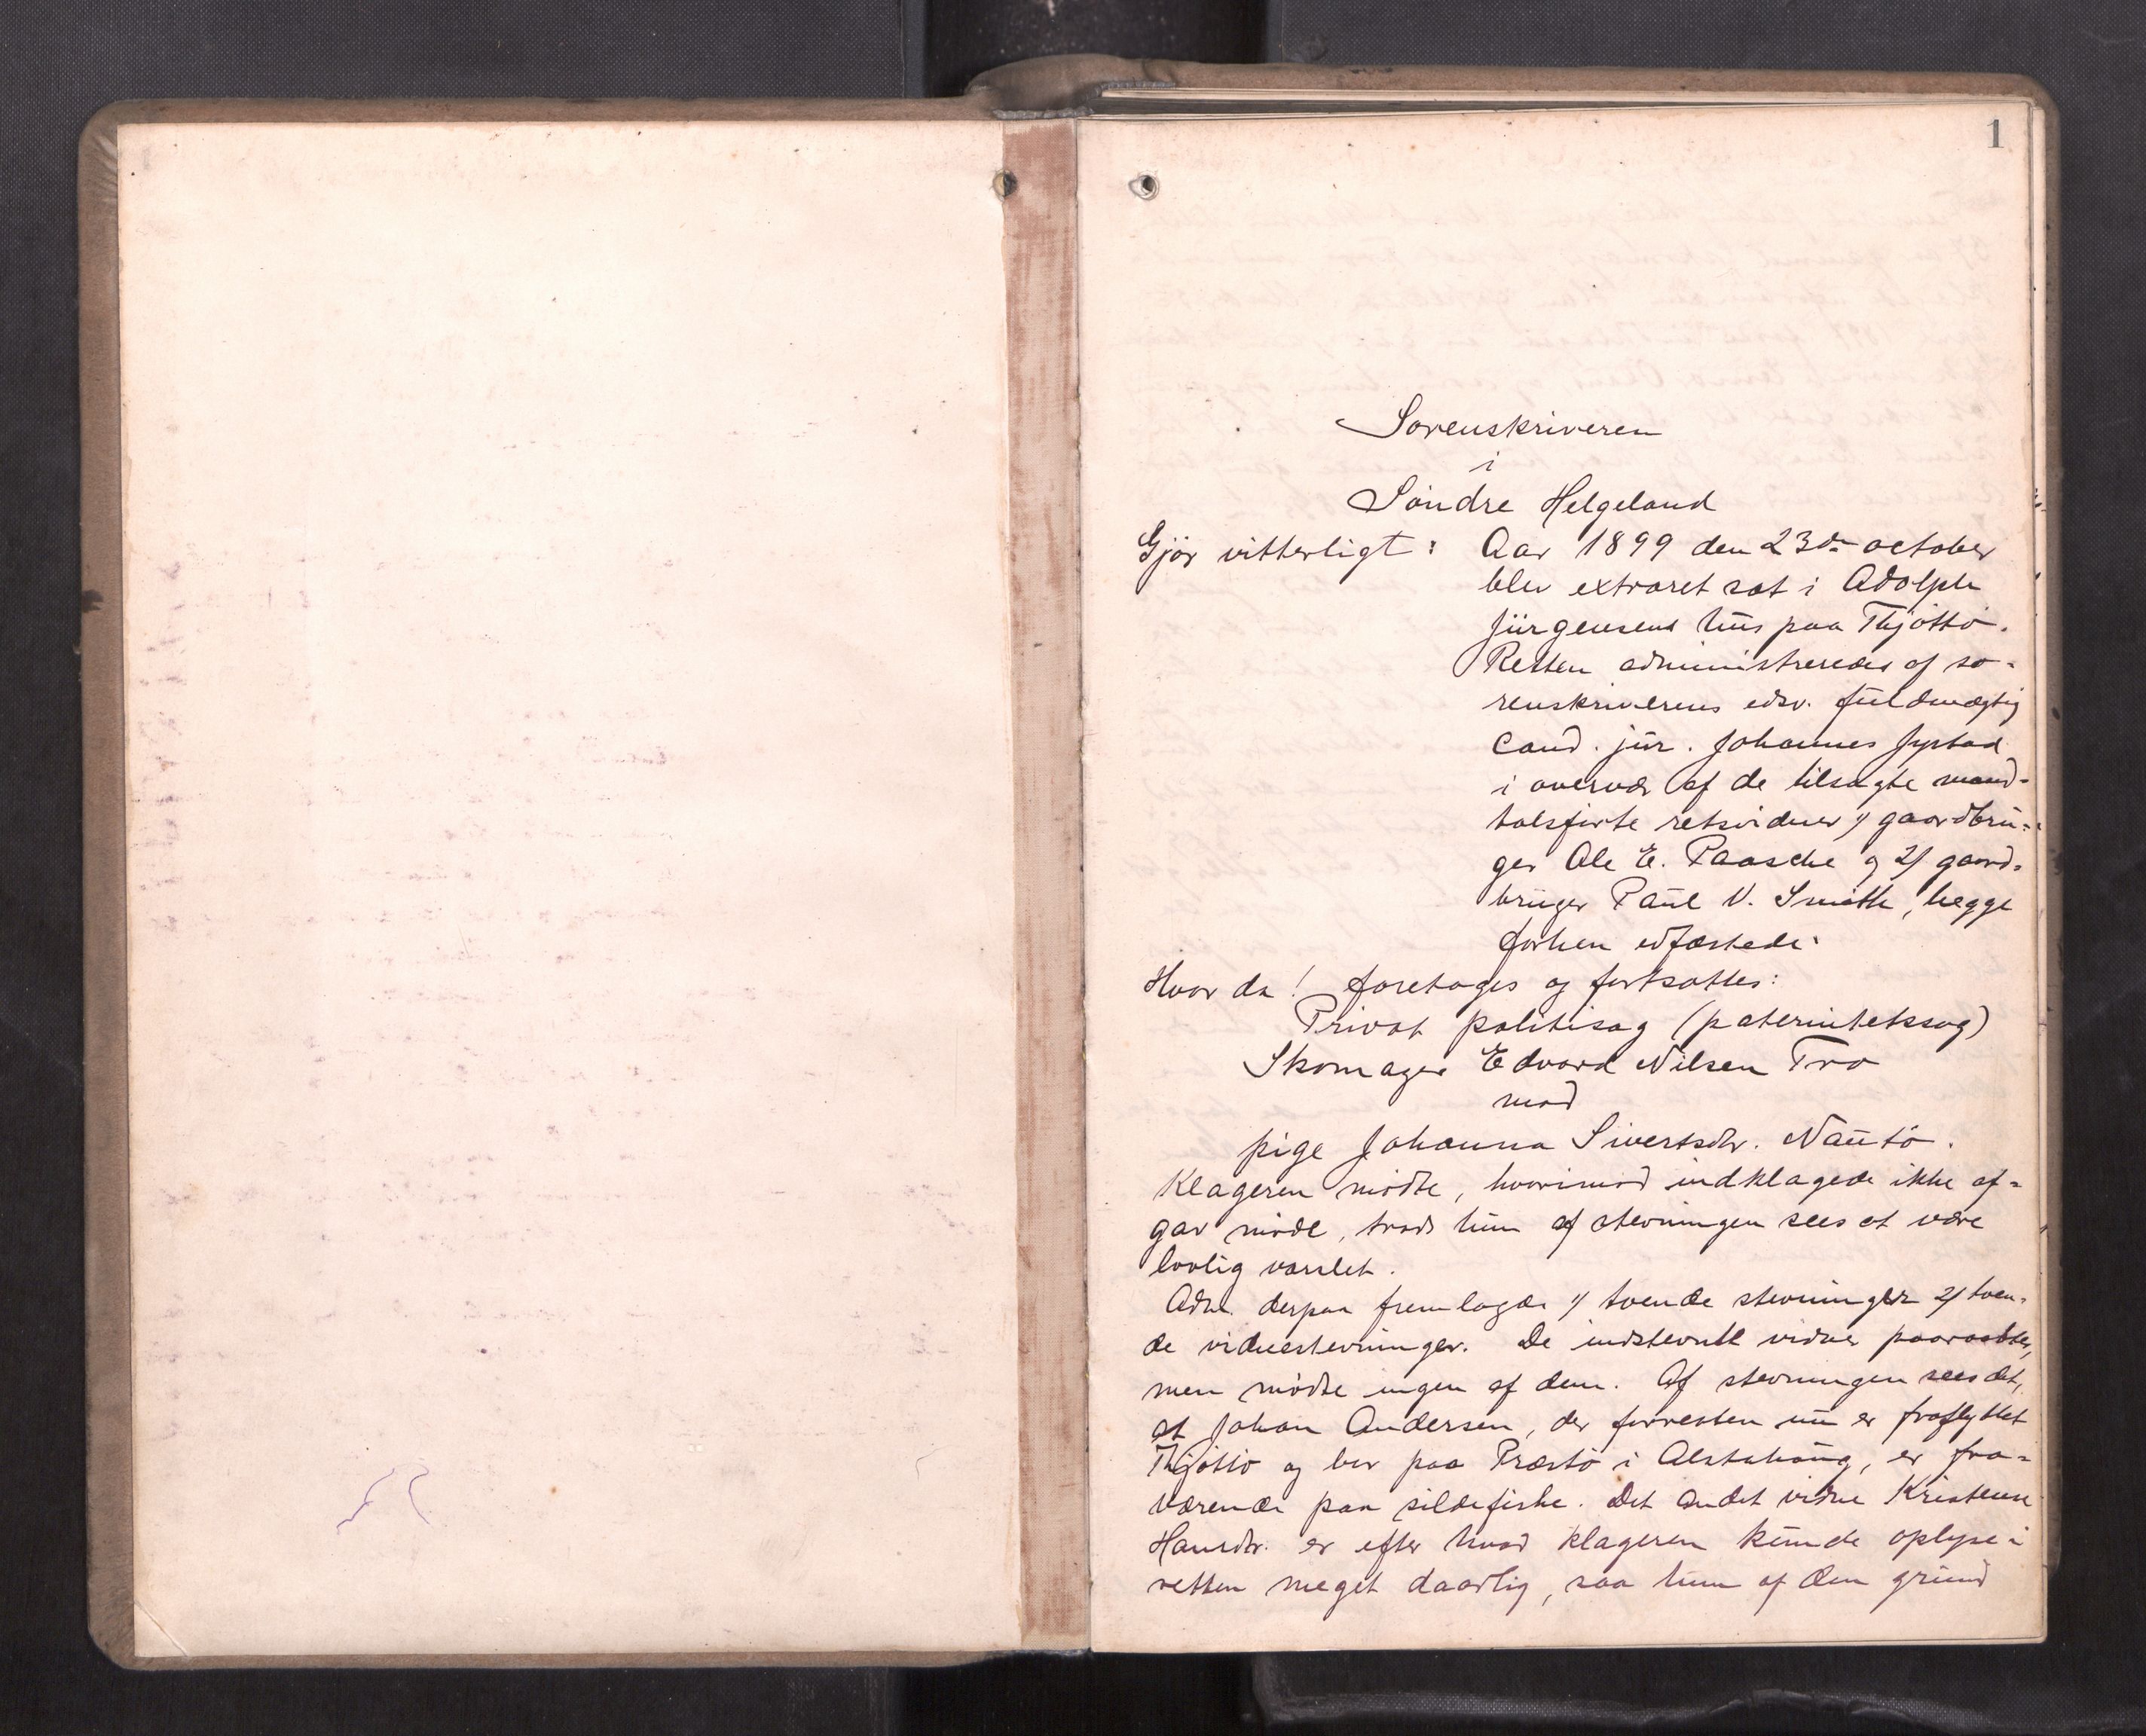 1
Sorenskriveren
i
Söndre Helgeland
Gjör vitterligt: Aar 1899 den 23de october
blev extraret sat i Adolph
Jürgensens hus paa Thjöttö.
Retten administreredes af so-
renskriverens edsv. fuldmægtig
cand. jur. Johannes
i overvær af de tilsagte mand-
talsførte retsvidner 1/ gaardbru-
ger Ole E. Paasche og 2/ gaard-
bruger Paul V. Smith, begge
forhen edfæstede.
Hvor da! foretoges og fortsattes:
Privat politisag (paternitetssag)
Skomager Edvard Nilsen Tro
mod
pige Johanna Sivertsdtr. Nautö.
Klageren mödte, hvorimod indklagede ikke af-
gav möde, trods hun af stevningen sees at være
lovlig varslet.
Adm. derpaa fremlagde 1/ tvende stevninger 2/ tven-
de vidnestevninger. De indstevnte vidner paaraabtes,
men mödte ingen af dem. Af stevningen sees det,
at Johan Andersen, der forresten nu er fraflyttet
Thjöttö og bor paa Præstö i Alstahaug, er fra-
værende paa sildefiske. Det andet vidne Kristense
Hansdtr. er efter hvad klageren kunde oplyse i
retten meget daarlig, saa hun af den grund